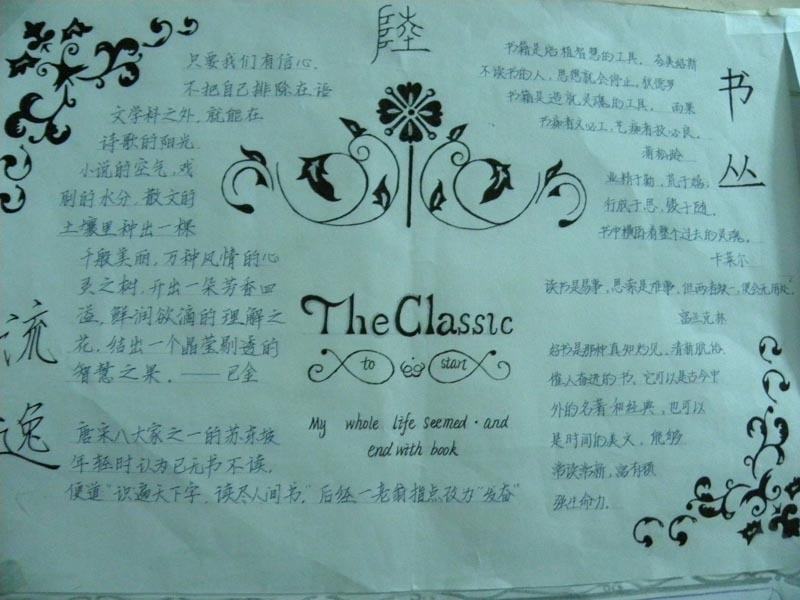 陸
书丛
流逸
只要我们有信心,
不把自己排除在语
文学科之外,就能在
诗歌的阳光
小说的空气,戏
剧的水分,散文的
土壤里种出一棵
千般美丽,万种风情的心
灵之树,开出一朵芳香四
溢,鲜润欲滴的理解之
花,结出一个晶莹剔透的
智慧之果。——巴金
唐宋八大家之一的苏东坡
年轻时认为已无书不读,
便道"识遍天下字,读尽人间书。"后经一老翁指点改为"发奋"
The Classic
to start
My whole life seemed · and
end with book
书籍是培植智慧的工具。夸美绌斯
不读书的人,思想就会停止。狄德罗
书籍是造就灵魂的工具。雨果
书痴者文必工,艺痴者技必良。
蒲松龄
业精于勤,荒于嬉;
行成于思,毁于随。
书中横卧着整个过去的灵魂。
卡莱尔
读书是易事,思索是难事,但两者缺一,便全无用处。
富兰克林
好书是那种真知灼见,清新肌怡
催人奋进的书。它可以是古今中
外的名著和经典,也可以
是时间的美文,能够
常读常新,富有顽
强生命力。